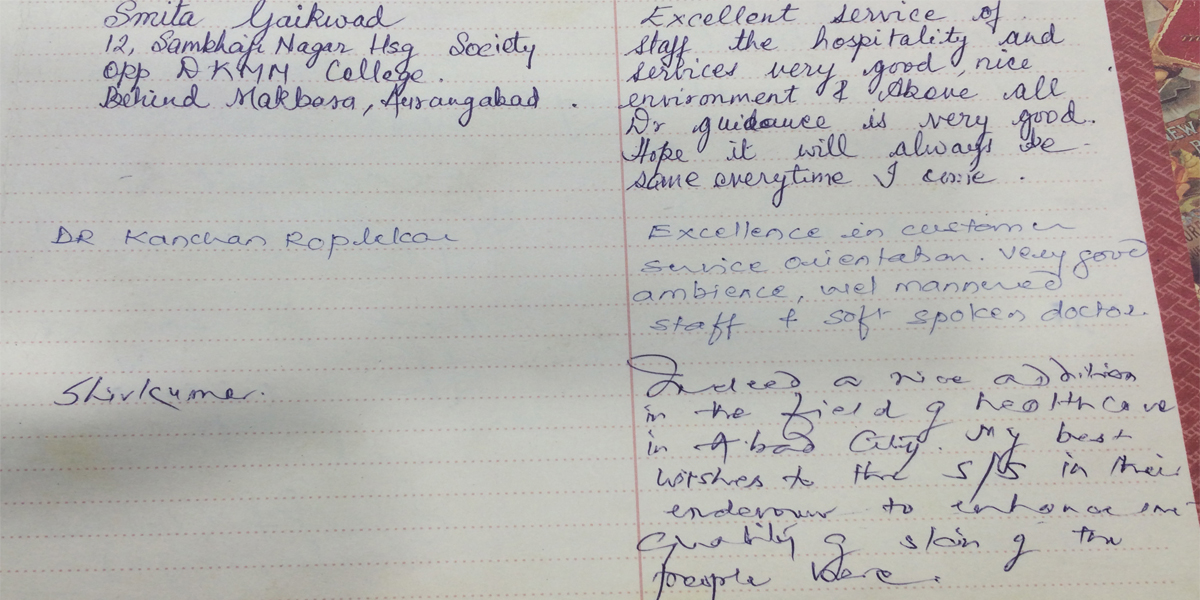 Smita Gaikwad
12, Sambhaji Nagar Hsg Society
opp DKMM College.
Behind Makbara, Aurangabad.
Excellent service of
staff the hospitality and
services very good, nice
environment & Above all
Dr guidance is very good.
Hope it will always be
same everytime I come.
DR Kanchan
Excellence in customer
service orientation. Very good
ambience, well mannered
staff & soft spoken doctor.
Shivkumar.
Indeed a nice addition
in the field of healthcare
in A'bad City. My best
wishes to the in their
endevour to enhance
quality of skin of the
people here.